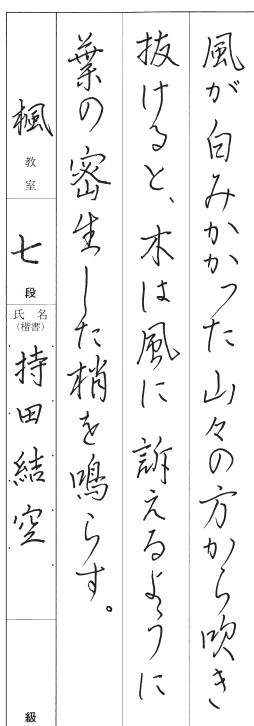 風が白みかかった山々の方から吹き
抜けると、木は風に訴えるように
葉の密生した梢を鳴らす。
楓 教室 七 段 氏名(楷書) 持田結空 級